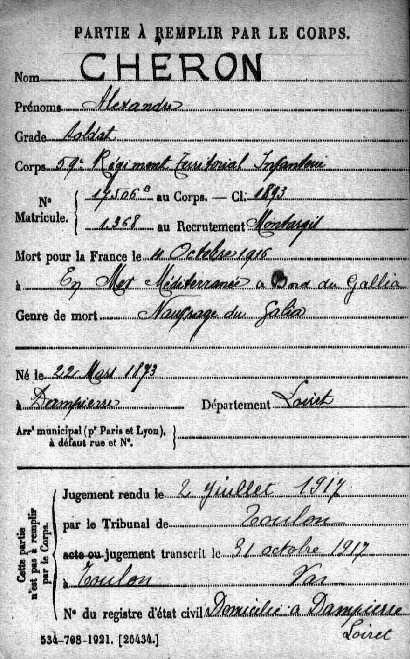 PARTIE À REMPLIR PAR LE CORPS.
Nom CHÉRON
Prénoms Alexandre
Grade Soldat
Corps 59e Régiment Territorial Infanterie
N° Matricule. 17506 a au Corps. — Cl. 1893
1.368 au Recrutement Montargis
Mort pour la France le 4 Octobre 1916
à En Mer Méditerranée a Bord du Gallia
Genre de mort Naufrage du Galia
Né le 22 Mars 1873
à Dampierre Département Loiret
Arrt municipal (pr Paris et Lyon), à défaut rue et N°.
Cette partie n'est pas à remplir par le Corps.
Jugement rendu le 2 Juillet 1917
par le Tribunal de Toulon
acte ou jugement transcrit le 31 octobre 1917
à Toulon Var
N° du registre d'état civil Domicilié a Dampierre
Loiret
534-708-1921. [26434.]